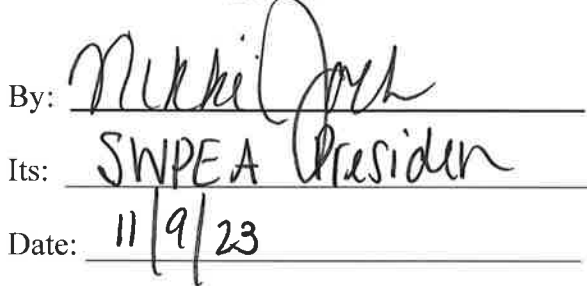 By: Nikki
Its: SWPEA Presiden
Date: 11/9/23